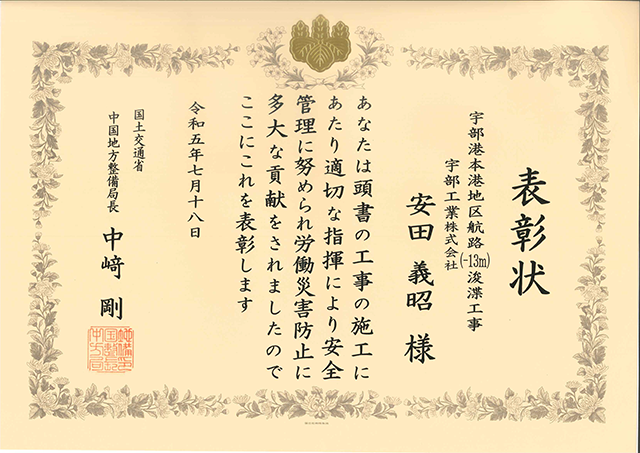 表彰状
宇部港本港地区航路(-13m)浚渫工事
宇部工業株式会社
安田 義昭 様
あなたは頭書の工事の施工に
あたり適切な指揮により安全
管理に努められ労働災害防止に
多大な貢献をされましたので
ここにこれを表彰します
令和五年七月十八日
国土交通省
中国地方整備局長
中﨑 剛